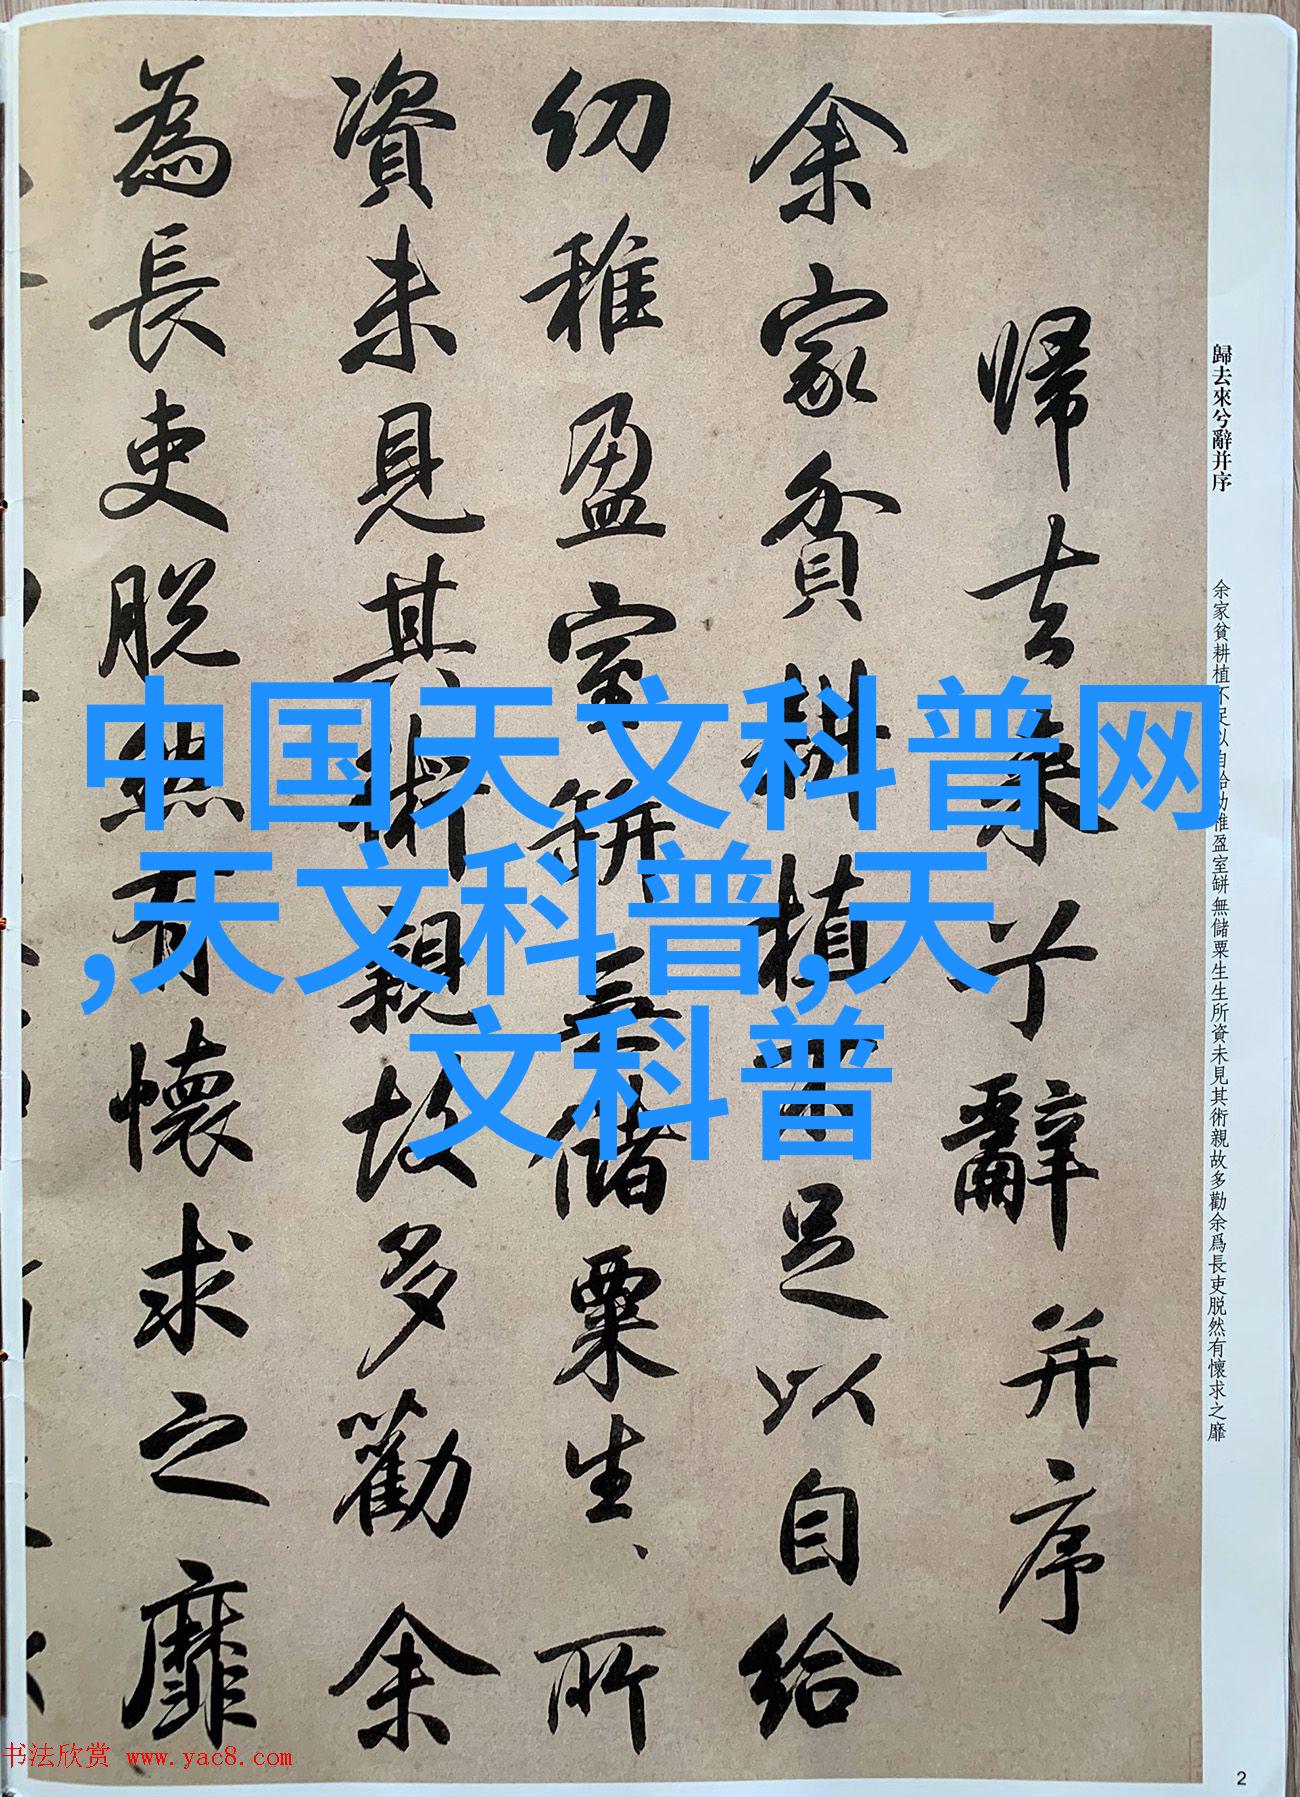 歸去來兮辭并序
余家貧耕植不足以自給幼稚盈室缾無儲粟生生所資未見其術親故多勸余爲長吏脱然有懷求之靡
帰去来兮辭并序
余家貧耕植不足以自給
幼稚盈室缾無儲粟生、所
資未見其術親故多勸余
為長吏脱然有懷求之靡
中国天文科普网
,天文科普,天
文科普
书法欣赏 www.yac8.com
2